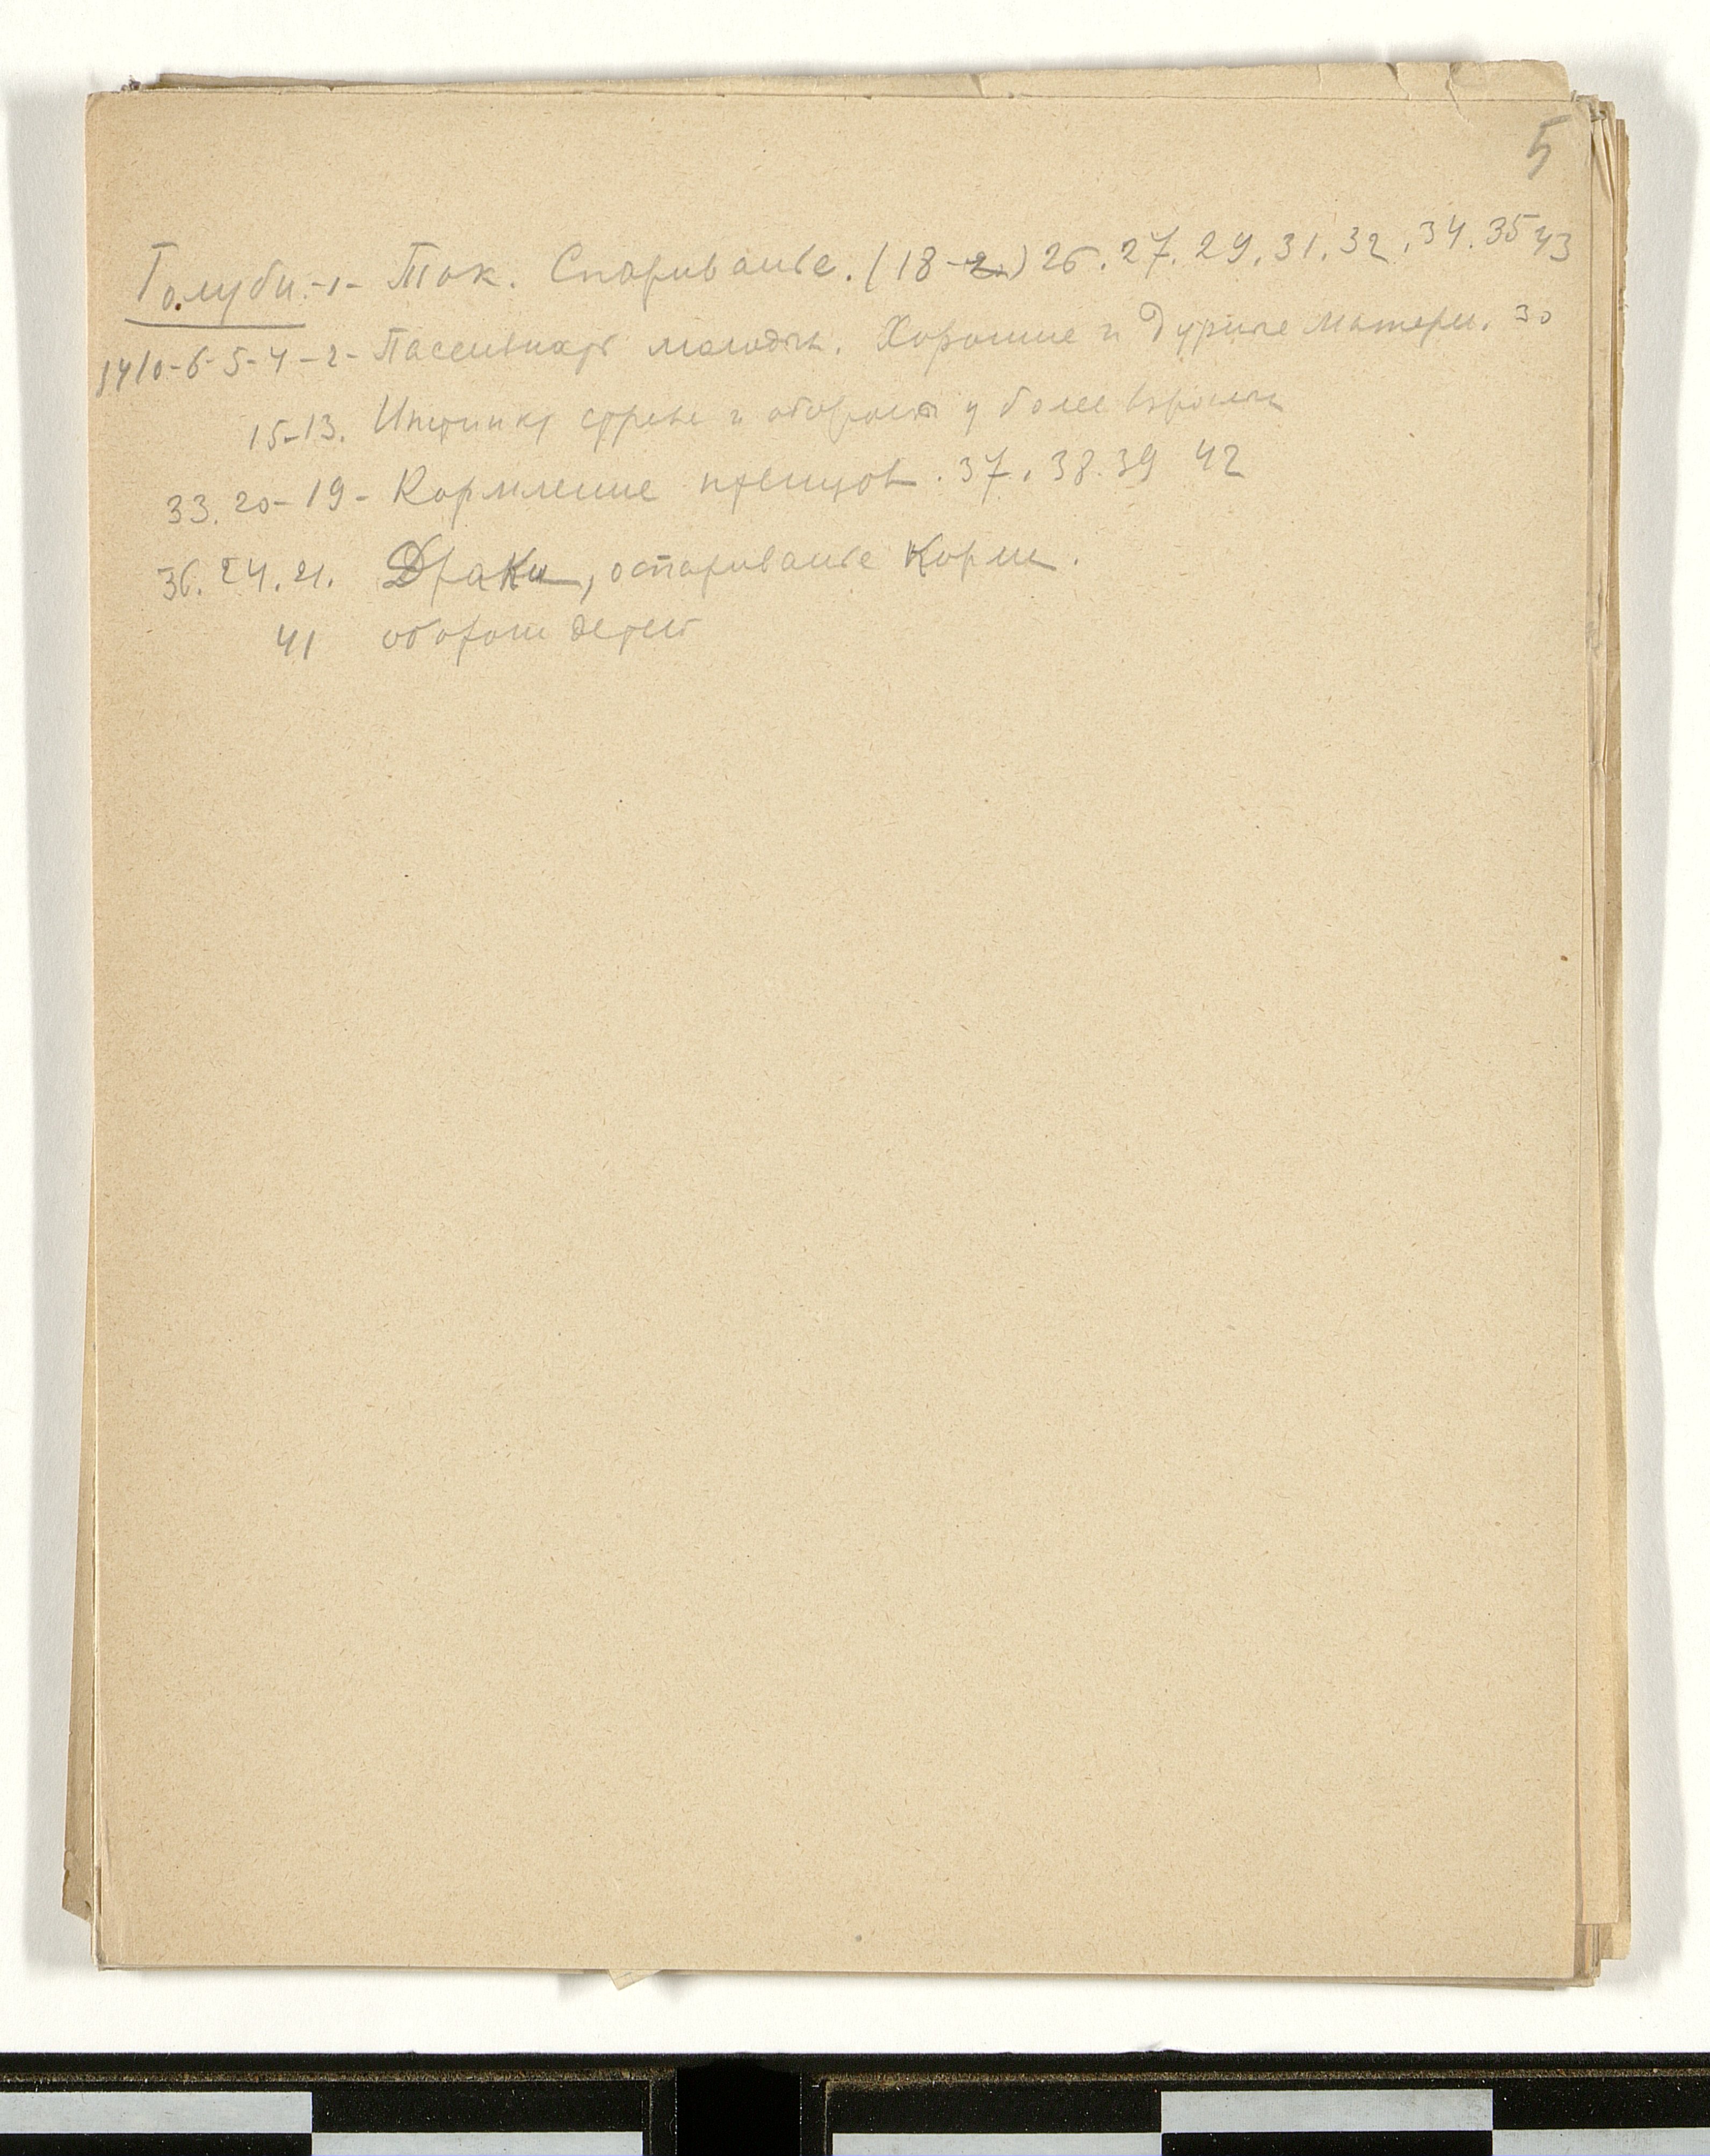 5
Голуби.-1- Ток. Спариванье. (18-2) 26. 27. 29. 31. 32. 34. 35 43
14 10-6-5-4-2- молодых. Хорошие и дурные матери. 30
15-13. Инстинкт и обороны у более взрослых
33. 20-19- Кормление птенцов. 37. 38. 39 42
36. 24. 21. Драки, оспариванье корма.
41 оборона детей